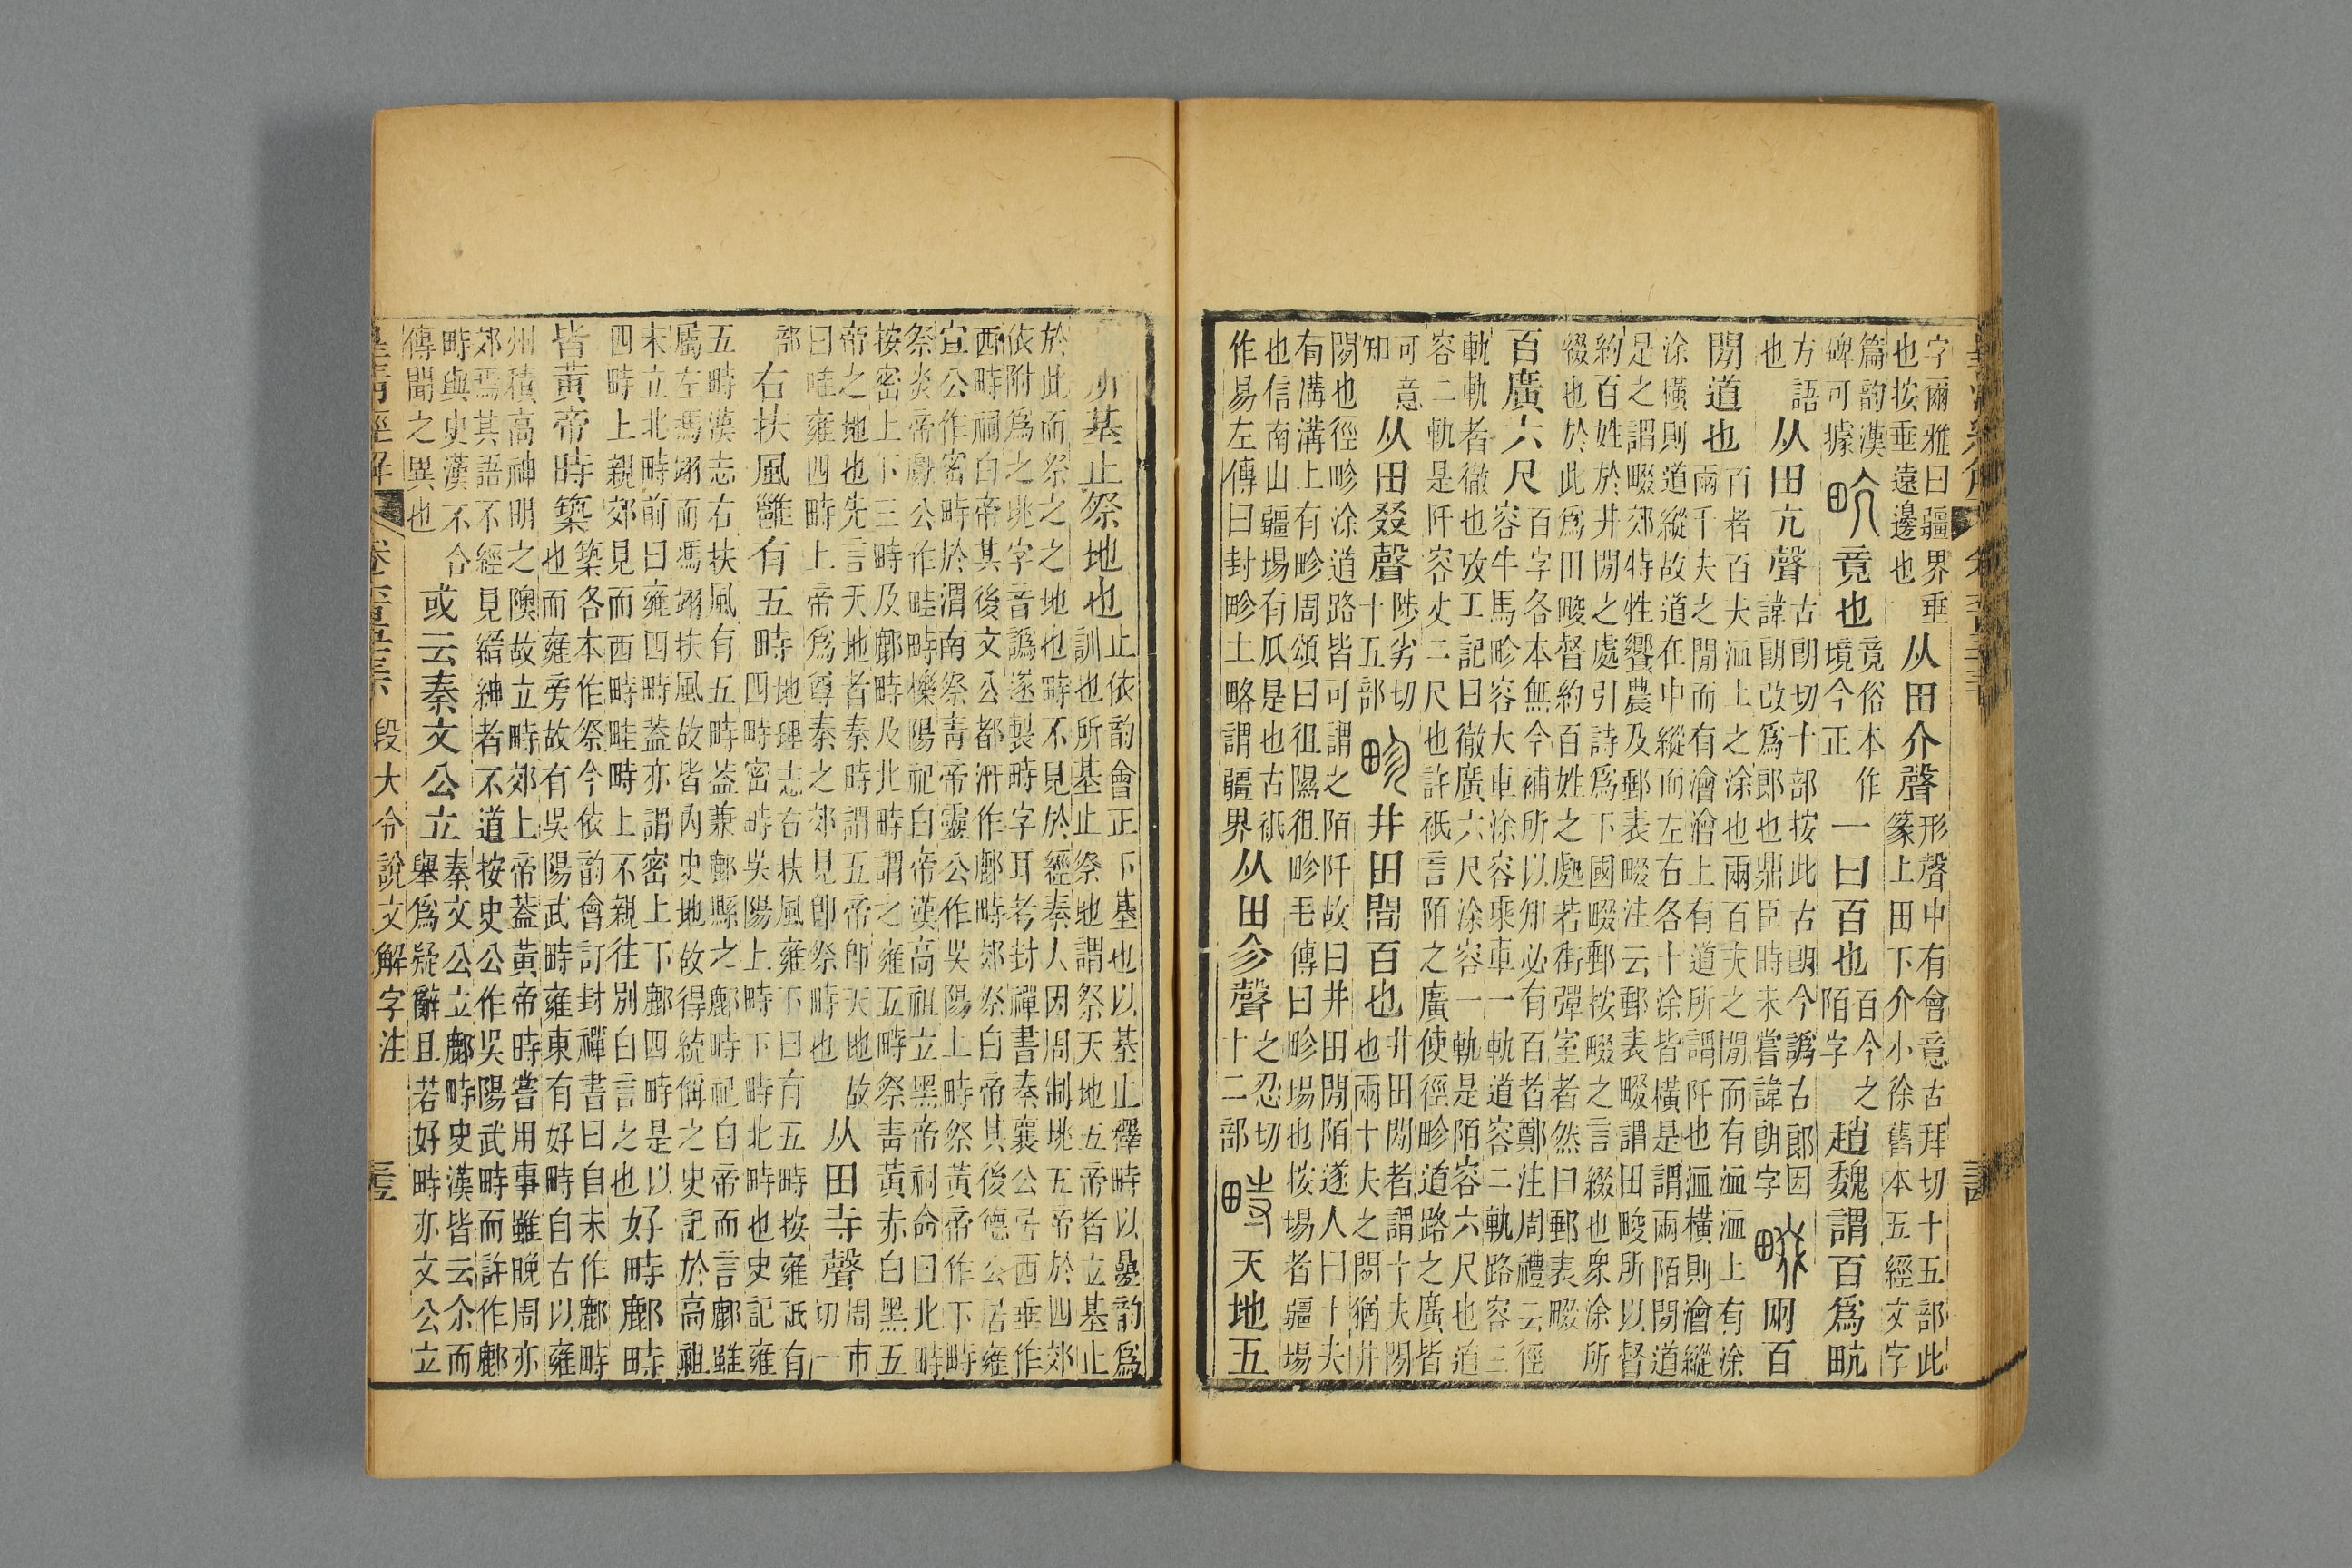 字爾雅曰疆界垂
也按垂遠邊也
从田介聲
形聲中有會意古拜切十五部此
篆上田下介小徐舊本五經文字
篇韵漢
碑可據
㽘竟也
竟俗本作
境今正
一曰百也
百今之
陌字
趙魏謂百爲㽘
方語
也
从田亢聲
古朗切十部按此古朗今譌古郎因
諱朗改爲郎也鼎臣時未嘗諱朗字
畷兩百
閒道也
百者百夫洫上之涂也兩百夫之閒而有洫洫上有涂
兩千夫之閒而有澮澮上有道所謂阡也洫橫則澮縱
涂橫則道縱故道在中縱而左右各十涂皆橫是謂兩陌閒道
是之謂畷郊特牲饗農及郵表畷注云郵表畷謂田畯所以督
約百姓於井閒之處引詩爲下國畷郵按畷之言綴也衆涂所
綴也於此爲田畯督約百姓之處若街彈室者然曰郵表畷
百廣六尺
百字各本無今補所以知必有百者鄭注周禮云徑
容牛馬畛容大車涂容乘車一軌道容二軌路容三
軌軌者徹也攷工記曰徹廣六尺涂容一軌是陌容六尺也道
容二軌是阡容丈二尺也許祇言陌之廣使徑畛道路之廣皆
可意
知
从田叕聲
陟劣切
十五部
畛井田閒百也
井田閒者謂十夫閒
也兩十夫之閒猶井
閒也徑畛涂道路皆可謂之陌阡故曰井田閒陌遂人曰十夫
有溝溝上有畛周頌曰徂隰徂畛毛傳曰畛埸也按埸者疆埸
也信南山疆埸有瓜是也古祇
作易左傳曰封畛土略謂疆界
从田㐱聲
之忍切
十二部
畤天地五
所基止祭地也
止依韵會正下基也以基止釋畤以曡韵爲
訓也所基止祭地謂祭天地五帝者立基止
於此而祭之之地也畤不見於經秦人因周制垗五帝於四郊
依附爲之垗字音譌遂製畤字耳考封禪書秦襄公居西垂作
西畤祠白帝其後文公都汧作鄜畤郊祭白帝其後德公居雍
宣公作密畤於渭南祭靑帝靈公作吳陽上畤祭黃帝作下畤
祭炎帝獻公作畦畤櫟陽祀白帝漢高祖立黑帝祠命曰北畤
按密上下三畤及鄜畤及北畤謂之雍五畤祭靑黃赤白黑五
帝之地也先言天地者秦畤謂五帝卽天地故
曰唯雍四畤上帝爲尊秦之郊見卽祭畤也
从田寺聲
周市
切一
部
右扶風雝有五畤
地理志右扶風雍下曰有五畤按雍祇有
四畤密畤吳陽上畤下畤北畤也史記雍
五畤漢志右扶風有五畤葢兼鄜縣之鄜畤祀白帝而言鄜雖
屬左馮翊而馮翊扶風故皆內史地故得統偁之史記於高祖
未立北畤前曰雍四畤葢亦謂密上下鄜四畤是以
四畤上親郊見而西畤畦畤上不親往別白言之也
好畤鄜畤
皆黃帝時築
築各本作祭今依韵會訂封禪書曰自未作鄜畤
也而雍旁故有吳陽武畤雍東有好畤自古以雍
州積高神明之隩故立畤郊上帝葢黃帝時嘗用事雖晚周亦
郊焉其語不經見縉紳者不道按史公作吳陽武畤而許作鄜
畤與史漢不合
傳聞之異也
或云秦文公立
秦文公立鄜畤史漢皆云尒而
舉爲疑辭且若好畤亦文公立
皇清經解
段大令說文解字注